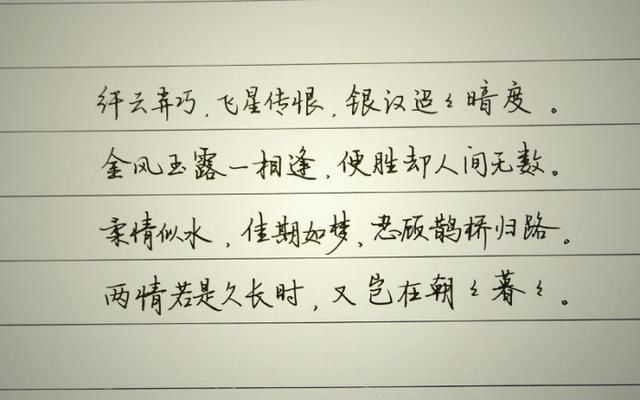 纤云弄巧，飞星传恨，银汉迢々暗度。
金风玉露一相逢，便胜却人间无数。
柔情似水，佳期如梦，忍顾鹊桥归路。
两情若是久长时，又岂在朝々暮々。